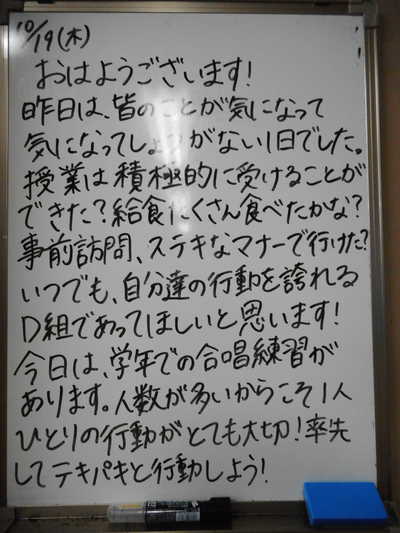 10/19(木)
おはようございます!
昨日は、皆のことが気になって
気になってしょうがない1日でした。
授業は積極的に受けることが
できた?給食たくさん食べたかな?
事前訪問、ステキなマナーで行けた?
いつでも、自分達の行動を誇れる
D組であってほしいと思います!
今日は、学年での合唱練習が
あります。人数が多いからこそ1人
ひとりの行動がとても大切!率先
してテキパキと行動しよう!